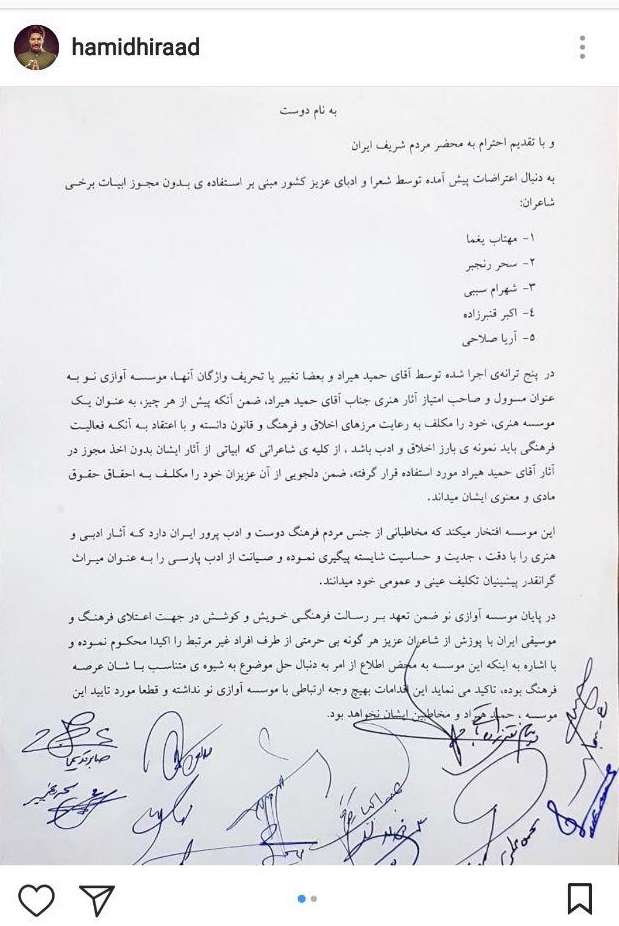 hamidhiraad
به نام دوست
و با تقدیم احترام به محضر مردم شریف ایران
به دنبال اعتراضات پیش آمده توسط شعرا و ادبای عزیز کشور مبنی بر استفاده ی بدون مجوز ابیات برخی
شاعران:
۱- مهتاب یغما
۲- سحر رنجبر
۳- شهرام سببی
۴- اکبر قنبرزاده
۵- آریا صلاحی
در پنج ترانه‌ی اجرا شده توسط آقای حمید هیراد و بعضا تغییر یا تحریف واژگان آنها، موسسه آوازی نو به
عنوان مسوول و صاحب امتیاز آثار هنری جناب آقای حمید هیراد، ضمن آنکه پیش از هر چیز، به عنوان یک
موسسه هنری، خود را مکلف به رعایت مرزهای اخلاق و فرهنگ و قانون دانسته و با اعتقاد به آنکه فعالیت
فرهنگی باید نمونه ی بارز اخلاق و ادب باشد ، از کلیه ی شاعرانی که ابیاتی از آثار ایشان بدون اخذ مجوز در
آثار آقای حمید هیراد مورد استفاده قرار گرفته، ضمن دلجویی از آن عزیزان خود را مکلف به احقاق حقوق
مادی و معنوی ایشان میداند.
این موسسه افتخار میکند که مخاطبانی از جنس مردم فرهنگ دوست و ادب پرور ایران دارد که آثار ادبی و
هنری را با دقت ، جدیت و حساسیت شایسته پیگیری نموده و صیانت از ادب پارسی را به عنوان میراث
گرانقدر پیشینیان تکلیف عینی و عمومی خود میدانند.
در پایان موسسه آوازی نو ضمن تعهد بر رسالت فرهنگی خویش و کوشش در جهت اعتلای فرهنگ و
موسیقی ایران با پوزش از شاعران عزیز هر گونه بی حرمتی از طرف افراد غیر مرتبط را اکیدا محکوم نموده و
با اشاره به اینکه این موسسه به محض اطلاع از امر به دنبال حل موضوع به شیوه ی متناسب با شان عرصه
فرهنگ بوده، تاکید می نماید این اقدامات بهیچ وجه ارتباطی با موسسه آوازی نو نداشته و قطعا مورد تایید این
موسسه ، حمید هیراد و مخاطبین ایشان نخواهد بود.